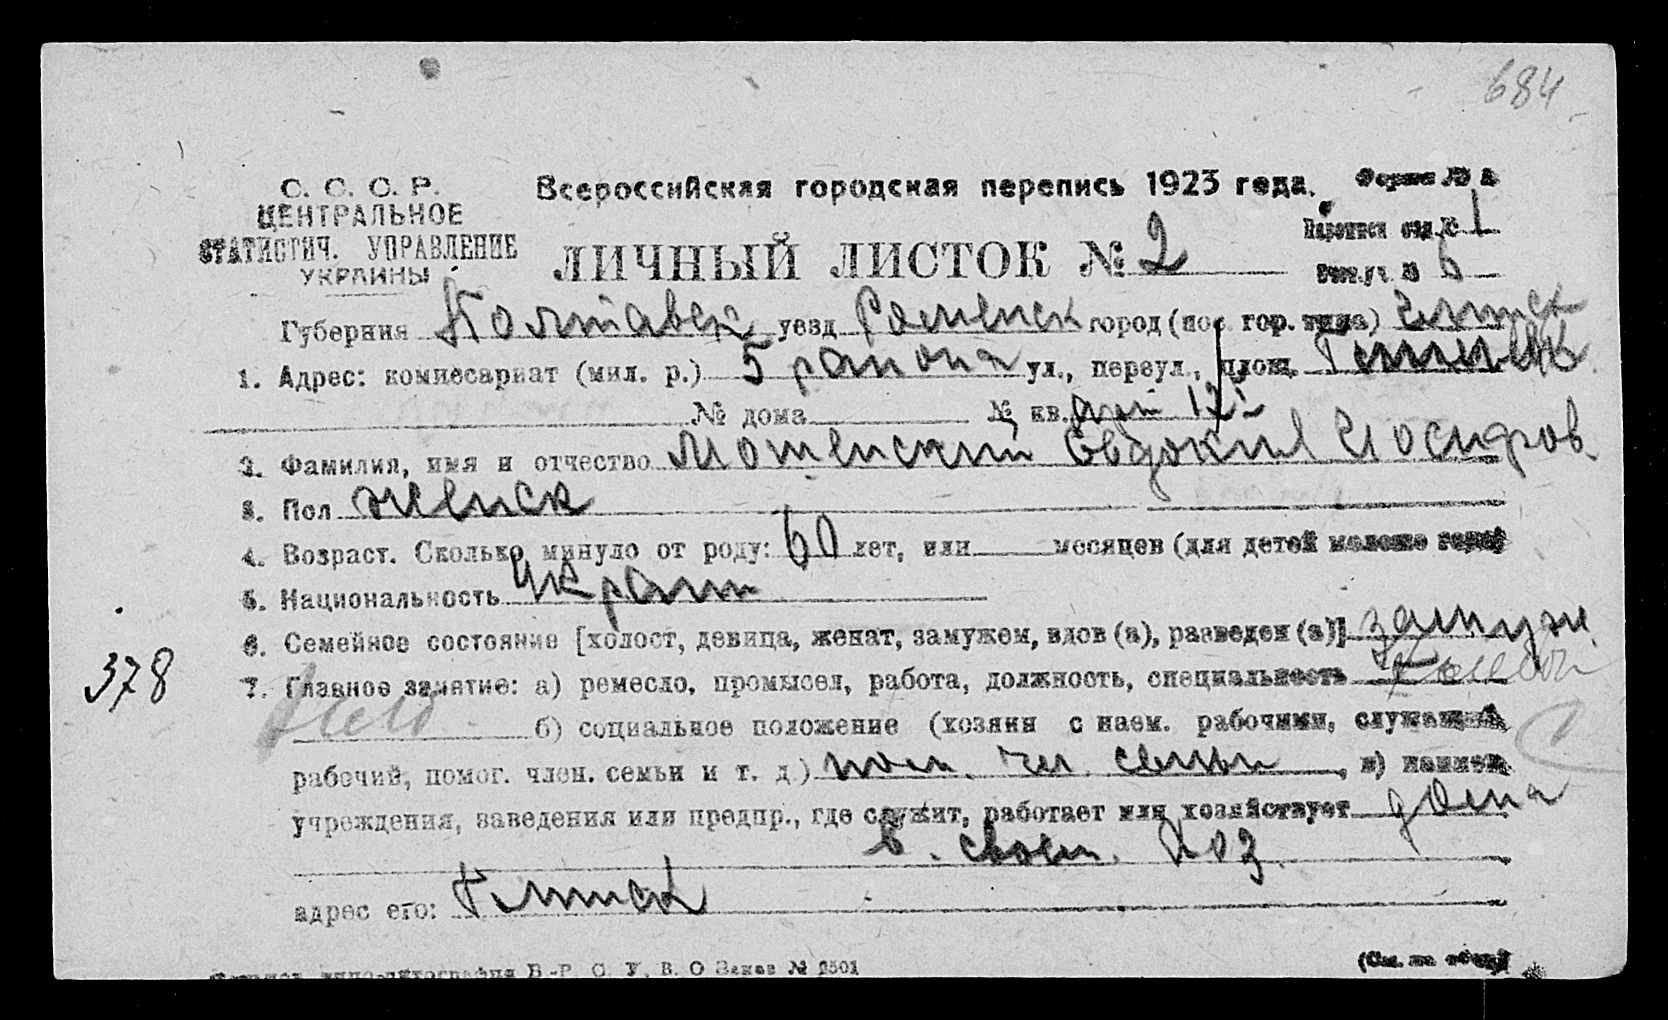 684
С. С. С. Р.
ЦЕНТРАЛЬНОЕ
СТАТИСТИЧ. УПРАВЛЕНИЕ
УКРАИНЫ
Всероссийская городская перепись 1923 года.
Форма № 2
ЛИЧНЫЙ ЛИСТОК № 2
Переписн отд. № 1
№ 6
Губерния Полтавск уезд Роменск город (пос. гор. типа) Глинск
1. Адрес: комиссариат (мил. р.) 5 района ул., переул., площ.
№ дома № кв. 12
2. Фамилия, имя и отчество Евдокия Иосифов.
3. Пол женск
4. Возраст. Сколько минуло от роду: 60 лет, или месяцев (для детей моложе года)
5. Национальность Украин
6. Семейное состояние [холост, девица, женат, замужем, вдов (а), разведен (а)] замуж
378
7. Главное занятие: а) ремесло, промысел, работа, должность, специальность
б) социальное положение (хозяин с наем. рабочими, служащий,
рабочий, помог. член. семьи и т. д.) пом. чл. семьи, в) наимен.
учреждения, заведения или предпр., где служит, работает или хозяйствует дома
в своем хоз.
адрес его: Глинск
В.-Р. С. У. В. О Заказ № 2501
(См. на обор.)